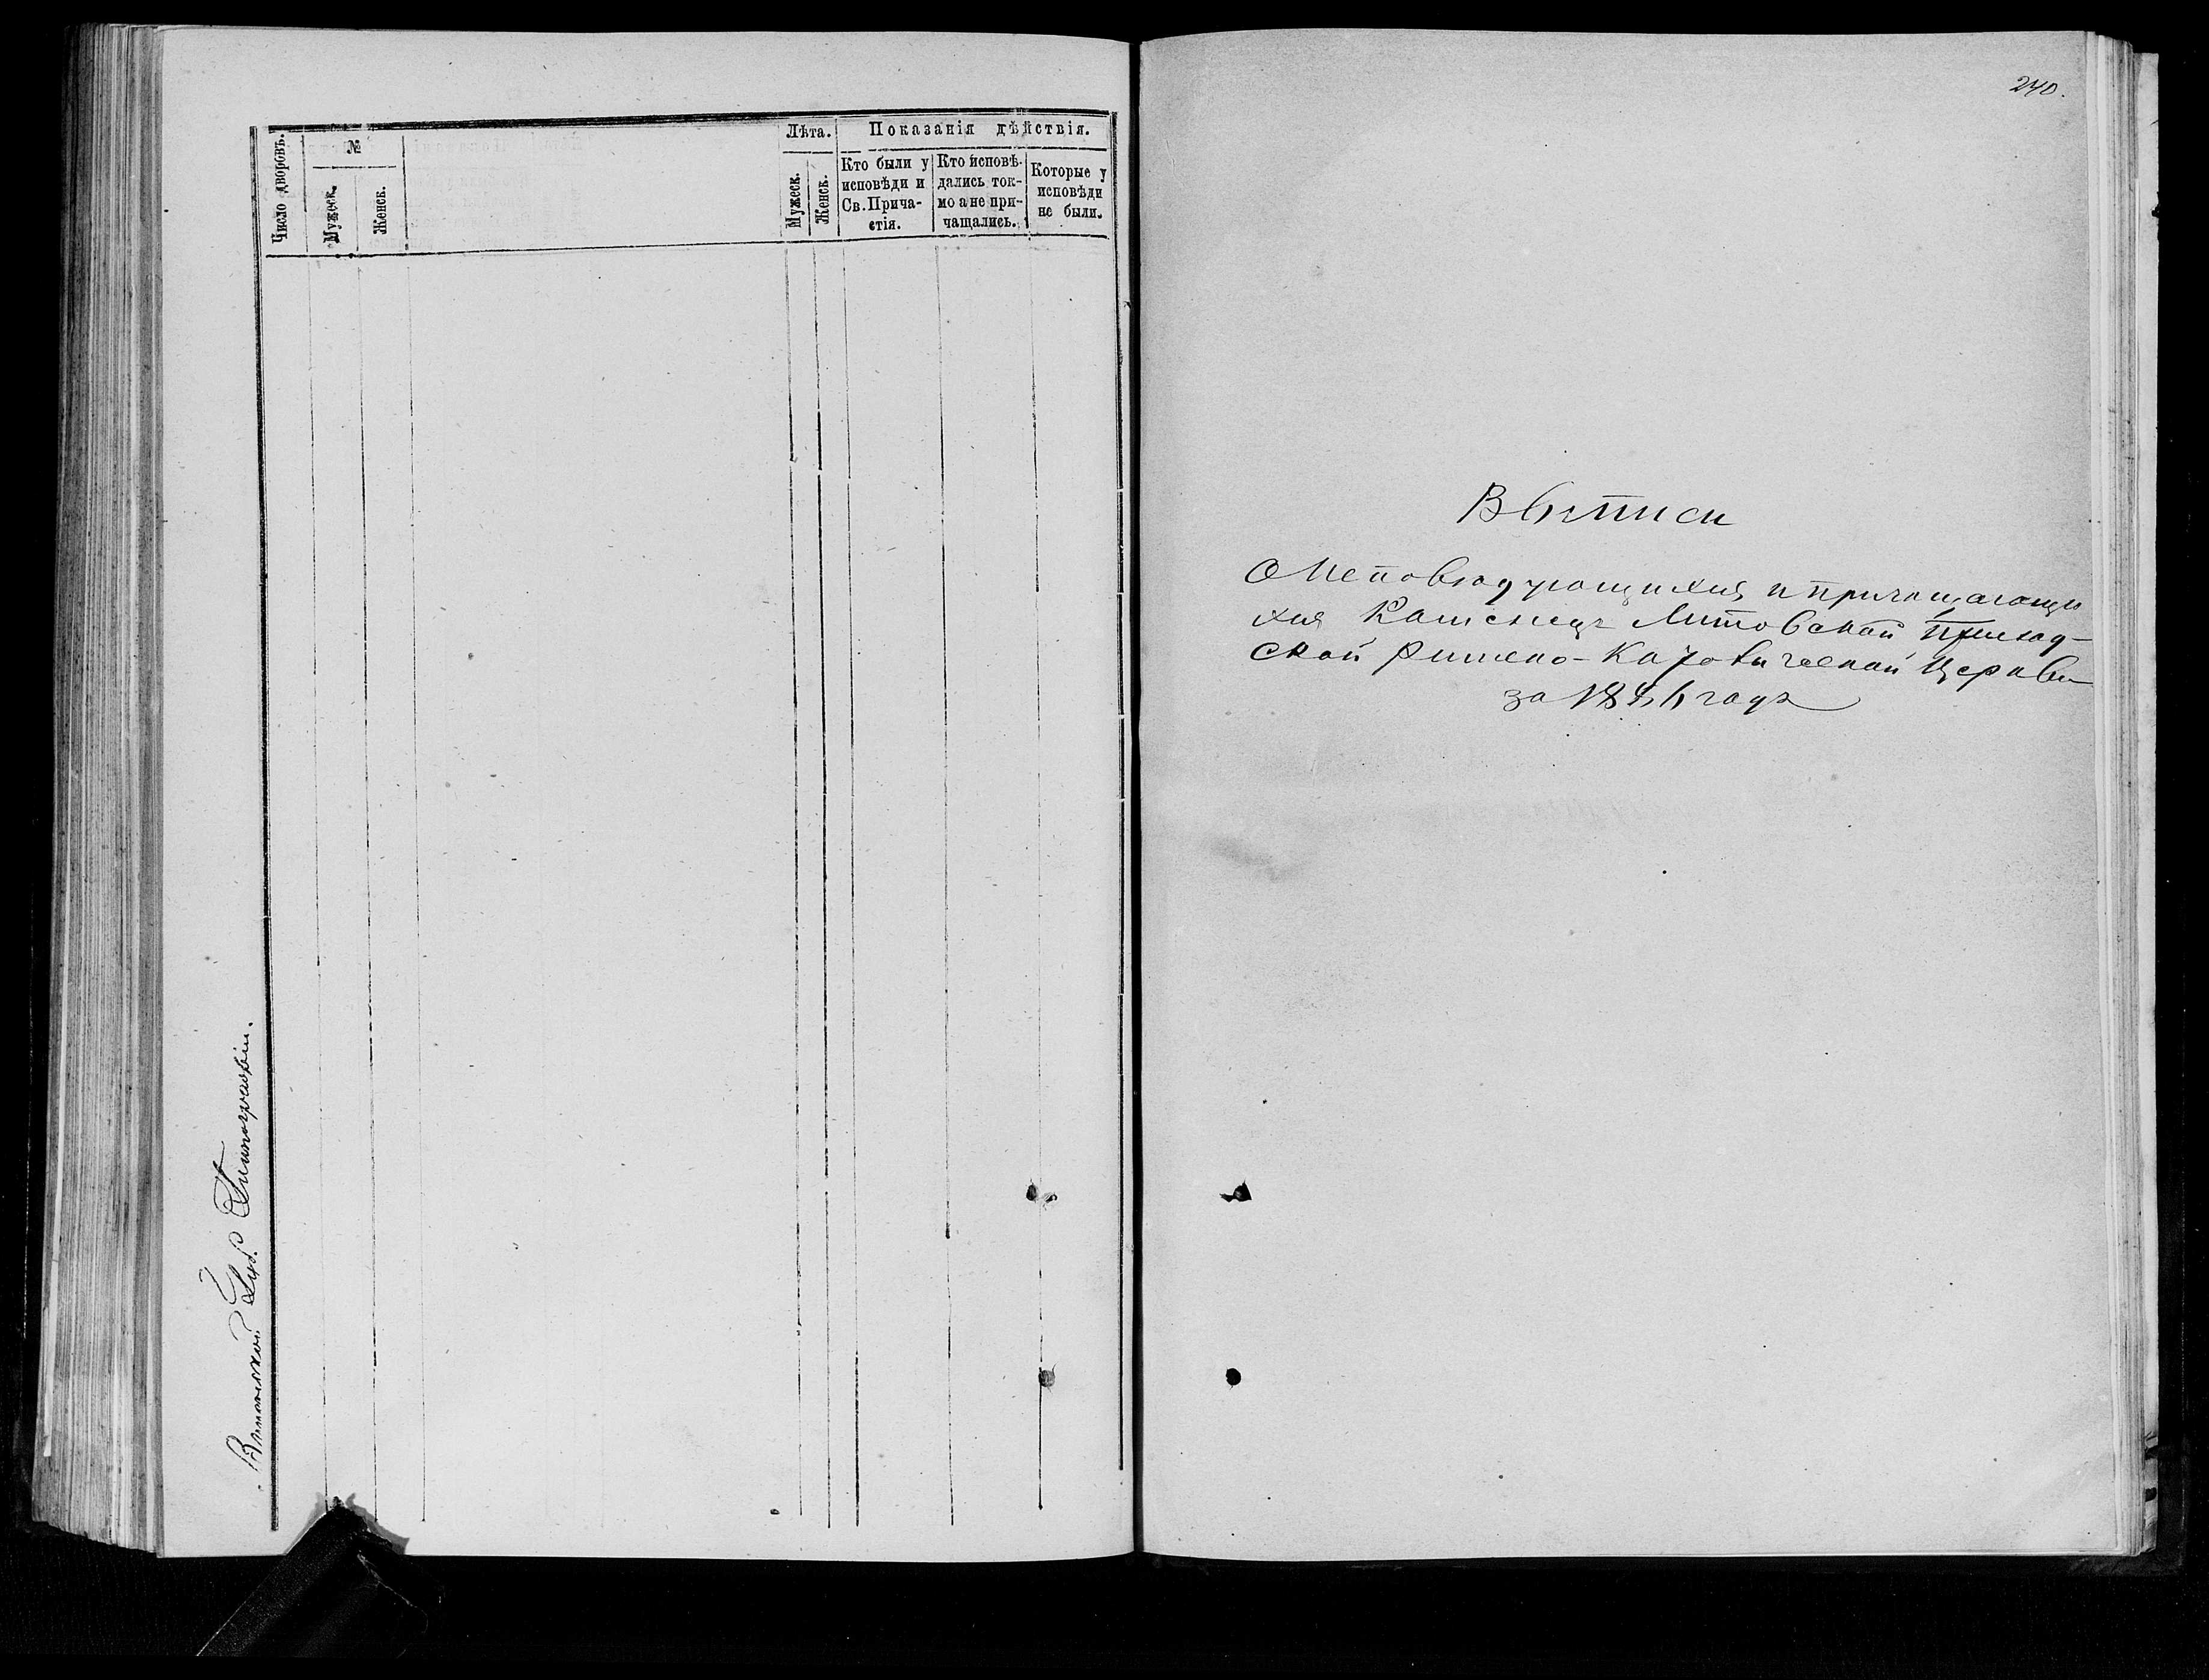 Число дворовъ.
№
Мужеск.
Женск.
Лѣта.
Мужеск.
Женск.
Показанія дѣйствія.
Кто были у
исповѣди и
Св. Прича-
стія.
Кто исповѣ-
дались ток-
мо а не при-
чащались.
Которые у
исповѣди
не были.
Губ. Типографіи.
240.
Выписи
О Исповѣдующихся и причащающи
хся Каменецъ Литовской Приход-
ской Римско-Каѳолической Церкви
за годъ